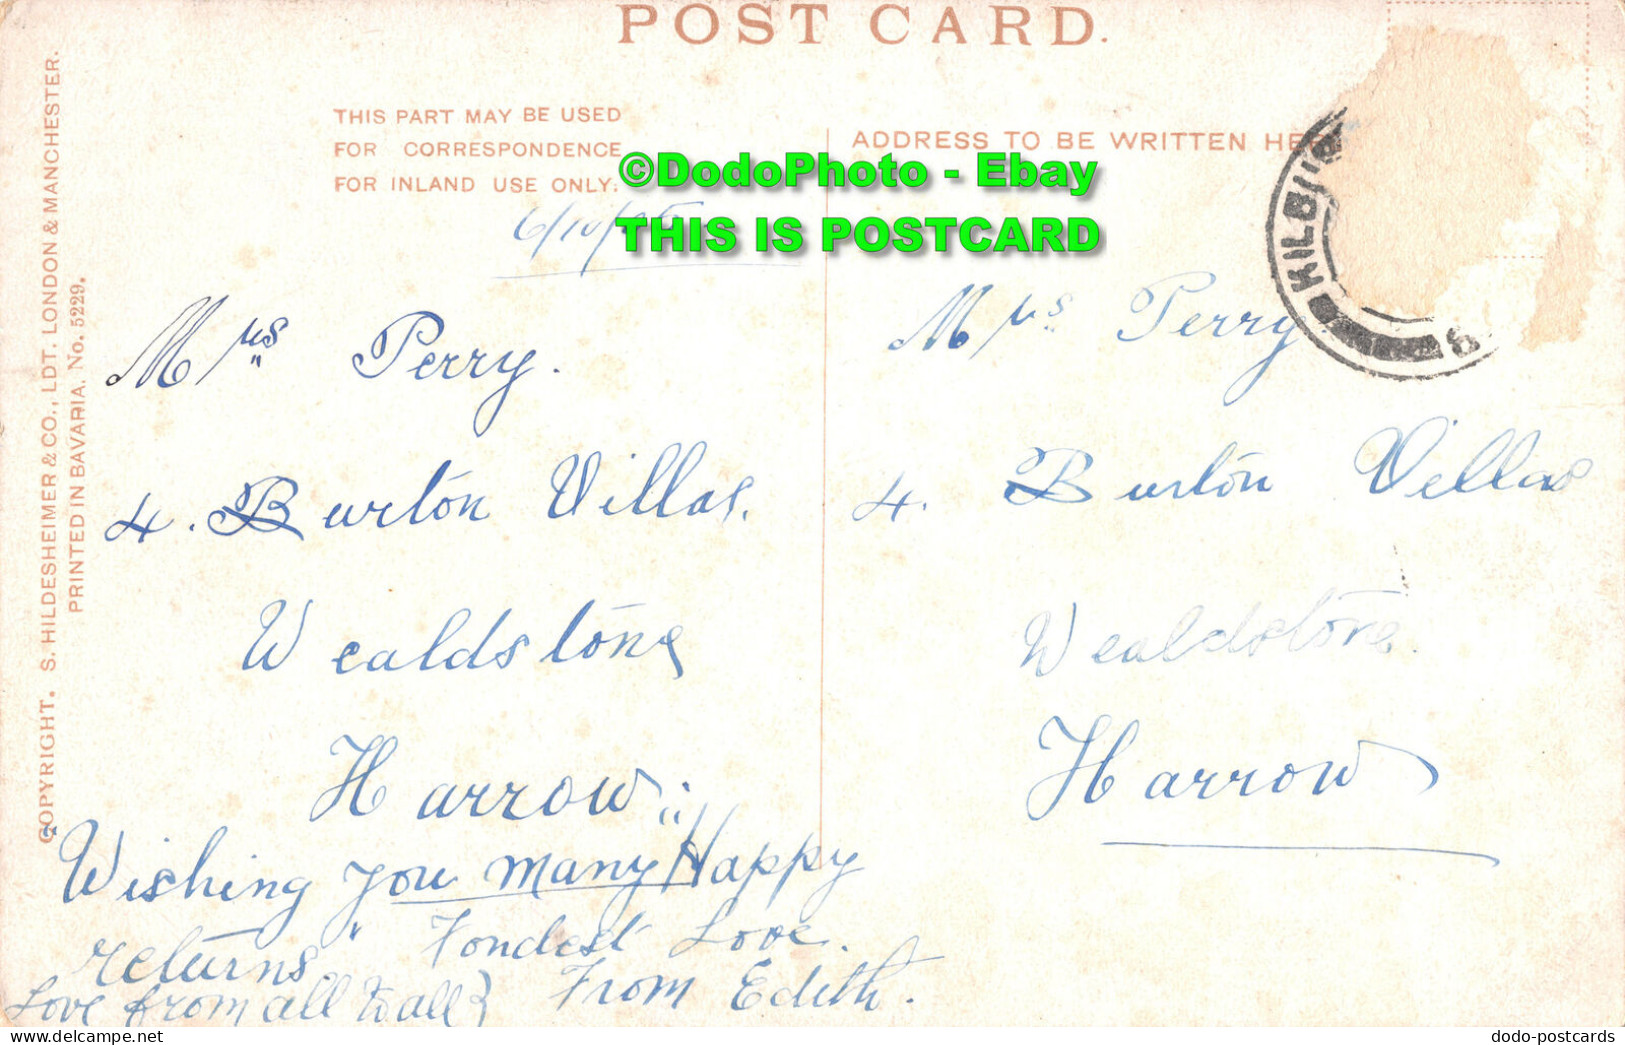 POST CARD.
THIS PART MAY BE USED
FOR CORRESPONDENCE
FOR INLAND USE ONLY.
ADDRESS TO BE WRITTEN HE
©DodoPhoto - Ebay
THIS IS POSTCARD
6/10/
COPYRIGHT. S. HILDESHEIMER & CO., LDT. LONDON & MANCHESTER.
PRINTED IN BAVARIA. No. 5229.
Mrs Perry.
4. Burton Villas.
Wealdstone
Harrow.
"Wishing you many Happy
returns" Fondest Love.
From Edith.
Love from all to all
Mrs Perry
4. Burton Villas
Wealdstone.
Harrow
KILB
8
dodo-postcards